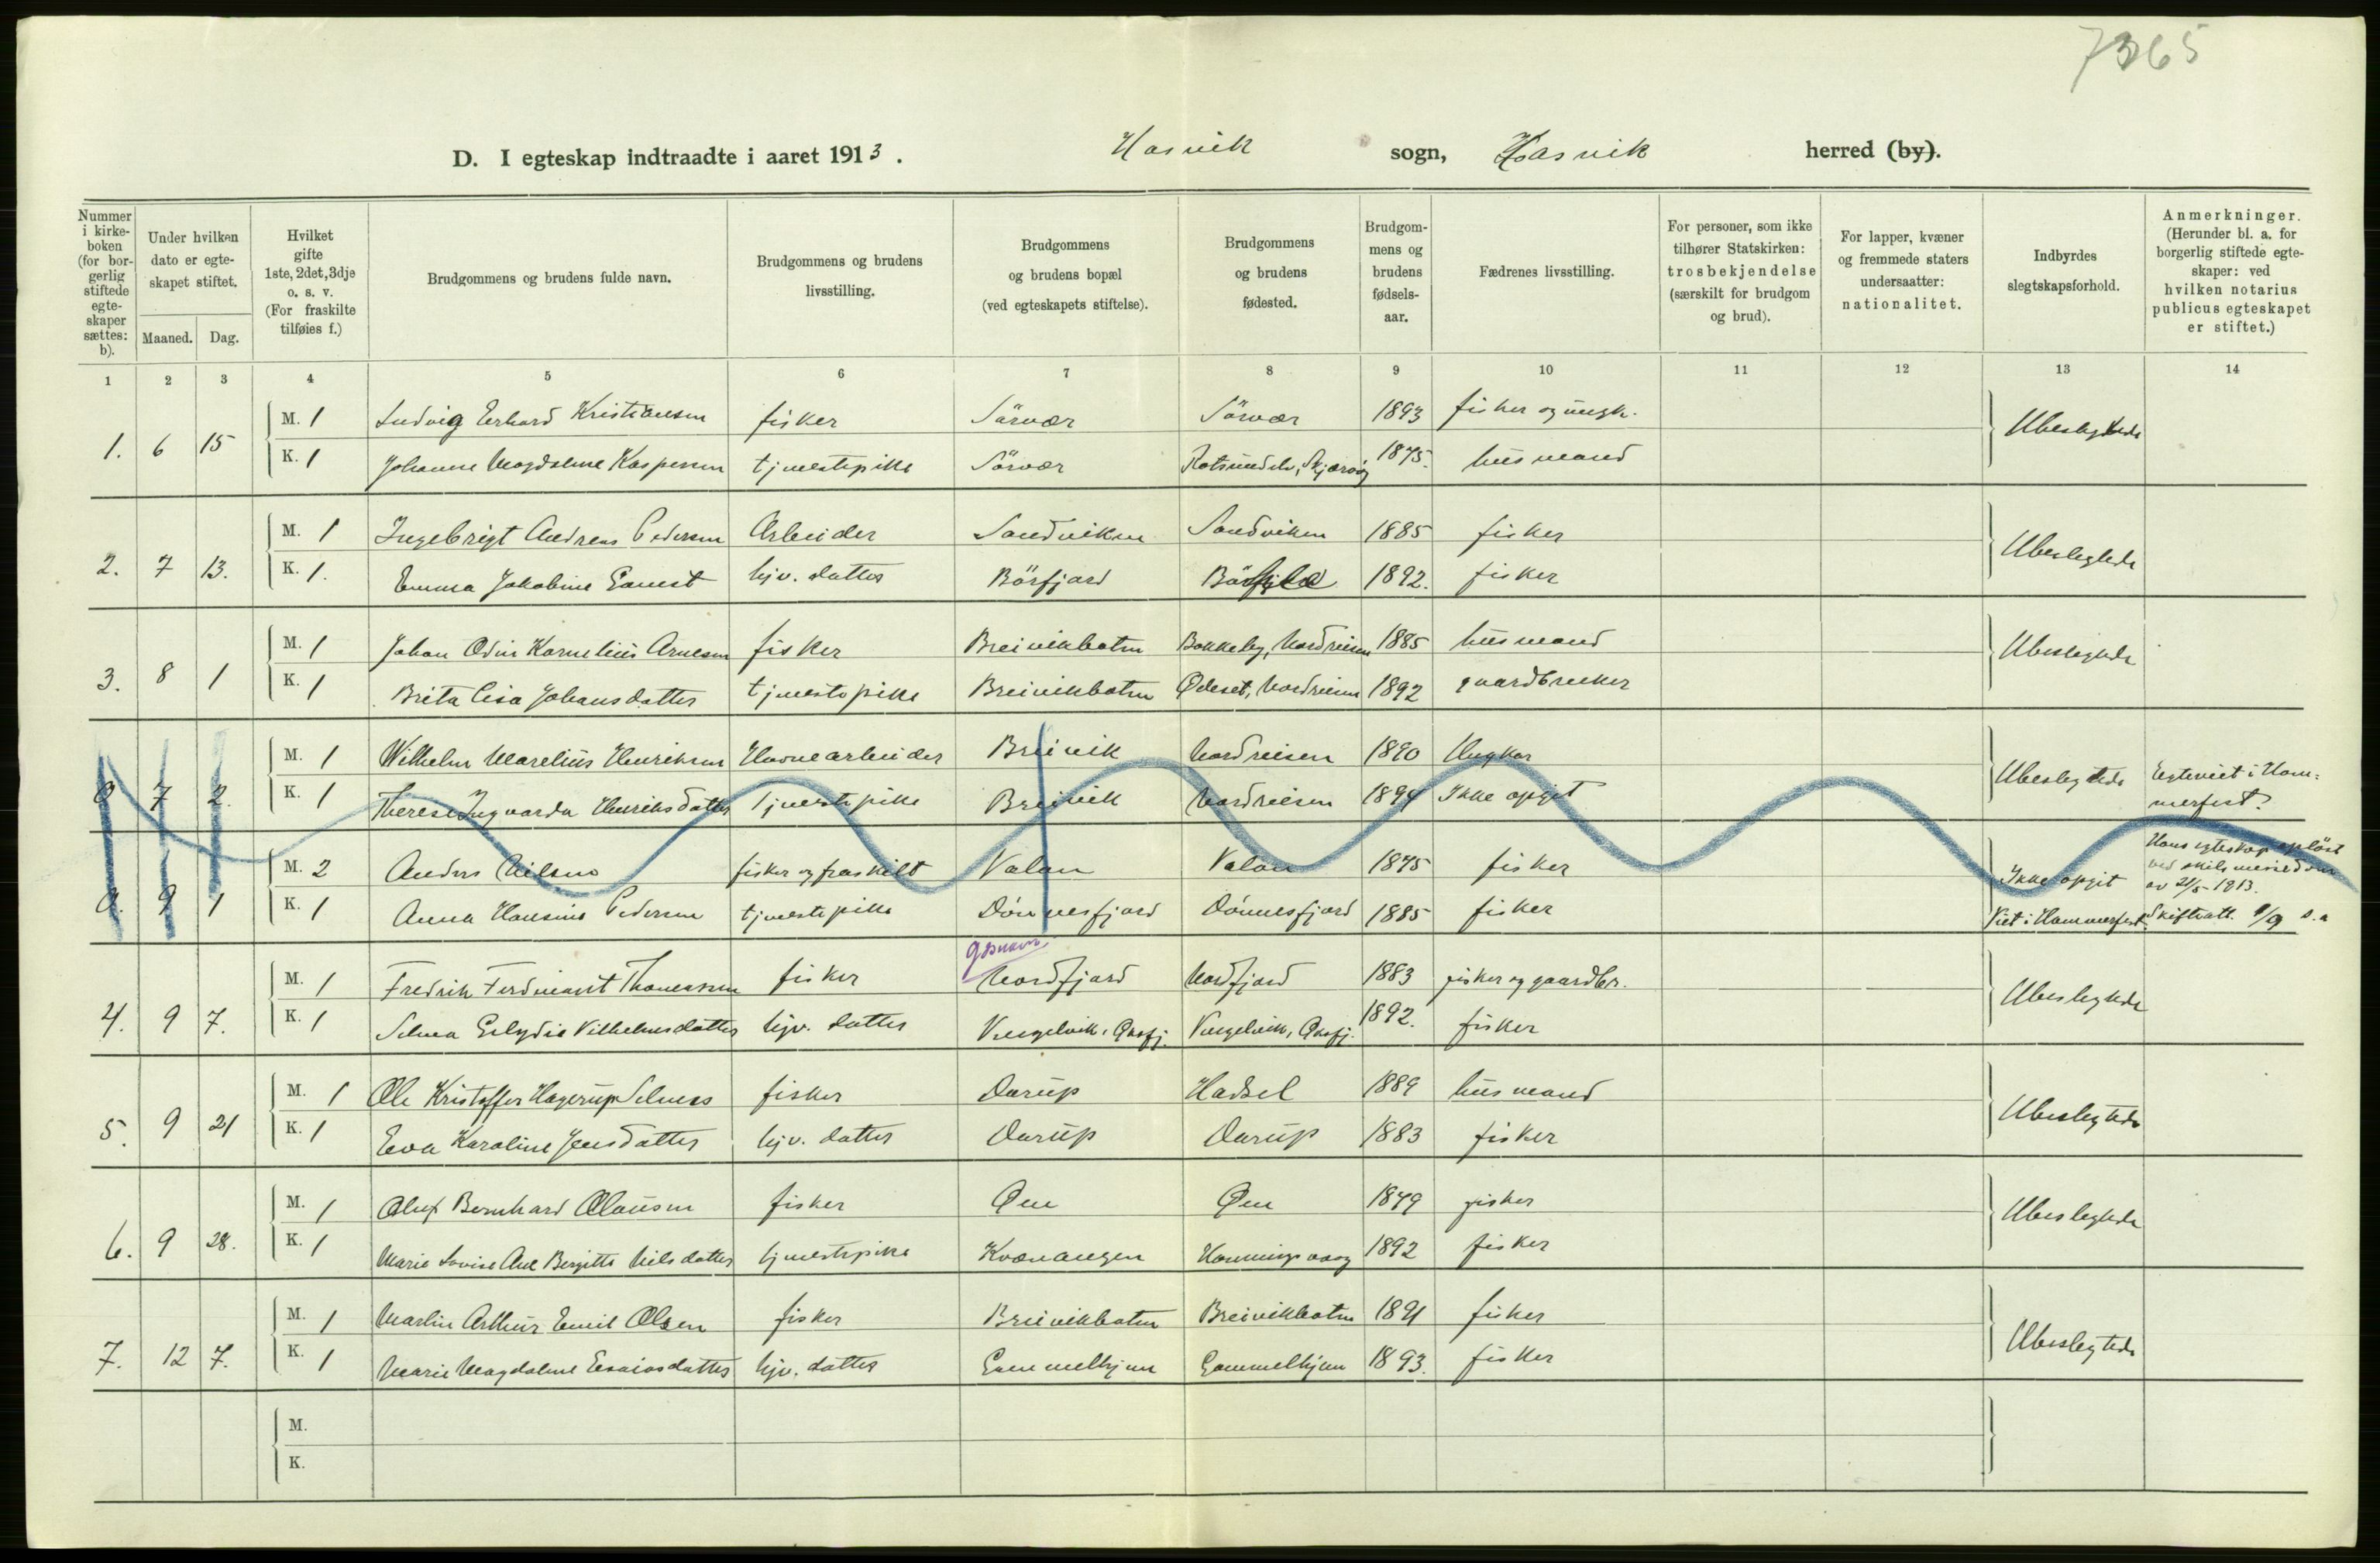 7365
D. I egteskap indtraadte i aaret 1913. Hasvik sogn, Hasvik herred (by).
Nummer i kirke-boken (for bor-gerlig stiftede egte-skaper sættes: b).
Under hvilken dato er egte-skapet stiftet.
Maaned. Dag.
Hvilket gifte 1ste, 2det, 3dje o. s. v. (For fraskilte tilføies f.)
Brudgommens og brudens fulde navn.
Brudgommens og brudens livsstilling.
Brudgommens og brudens bopæl (ved egteskapets stiftelse).
Brudgommens og brudens fødested.
Brudgom-mens og brudens fødsels-aar.
Fædrenes livsstilling.
For personer, som ikke tilhører Statskirken: trosbekjendelse (særskilt for brudgom og brud).
For lapper, kvæner og fremmede staters undersaatter: nationalitet.
Indbyrdes slegtskapsforhold.
Anmerkninger. (Herunder bl. a. for borgerlig stiftede egte-skaper: ved hvilken notarius publicus egteskapet er stiftet.)
1 2 3 4 5 6 7 8 9 10 11 12 13 14
1. 6 15 M. 1 Ludvig Erhard Kristiansen fisker Sörvær Sörvær 1893 fisker og ungk. Ubeslegtede
K. 1 Johanne Magdalene Kaspersen tjenestepike Sörvær Rotsundelv, Skjervöy 1875. husmand
2. 7 13. M. 1 Ingebrigt Andreas Pedersen Arbeider Sandviken Sandviken 1885 fisker Ubeslegtede
K. 1. Emma Jakobine Gamst hjv. datter Börfjord 1892. fisker
3. 8 1 M. 1 Johan Odin Kornelius Arnesen fisker Breivikbotn Bakkeby, Nordreisen 1885 husmand Ubeslegtede
K. 1 Brita Lisa Johansdatter tjenestepike Breivikbotn Nordreisen 1892 gaardbruker
0. 7 2. M. 1 Wilhelm Marelius Henriksen Havnearbeider Breivik Nordreisen 1890 Ungkar Ubeslegtede Egteviet i Ham-
K. 1 Therese Ingvarda Henriksdatter tjenestepike Breivik Nordreisen 1894 Ikke opgit merfest.
0. 9 1 M. 2 Anders Nilsen fisker og fraskilt Valan Valan 1875 fisker Ikke opgit Hans egteskap oplöst
ved skilsmissedom
av 21/5-1913.
K. 1 Anna Hansine Pedersen tjenestepike Dönnesfjord Dönnesfjord 1885 fisker Viet i Hammerfest. Skifteatt. 1/9 s. a
4. 9 7. M. 1 Fredrik Ferdinant Thomassen fisker Nordfjord Nordfjord 1883 fisker og gaardbr. Ubeslegtede
K. 1 Selma Vilhelmsdatter hjv. datter Vengelvik, Öksfj. Vengelvik, Öksfj. 1892. fisker
5. 9 21 M. 1 Ole Kristoffer Hagerup Selnæs fisker Darup Hadsel 1889 husmand Ubeslegtede
K. 1 Eva Karoline Jensdatter hjv. datter Darup Darup 1883 fisker
6. 9 28. M. 1 Oluf Bernhard Olausen fisker Øen Øen 1879 fisker Ubeslegtede
K. 1 Marie Lovise Ane Bergitte Nilsdatter tjenestepike Kvænangen Honningsvaag 1892 fisker
7. 12 7. M. 1 Martin Arthur Emil Olsen fisker Breivikbotn Breivikbotn 1891 fisker Ubeslegtede
K. 1 Marie Magdalene Esaiasdatter hjv. datter Gammelhjem Gammelhjem 1893. fisker
M.
K.